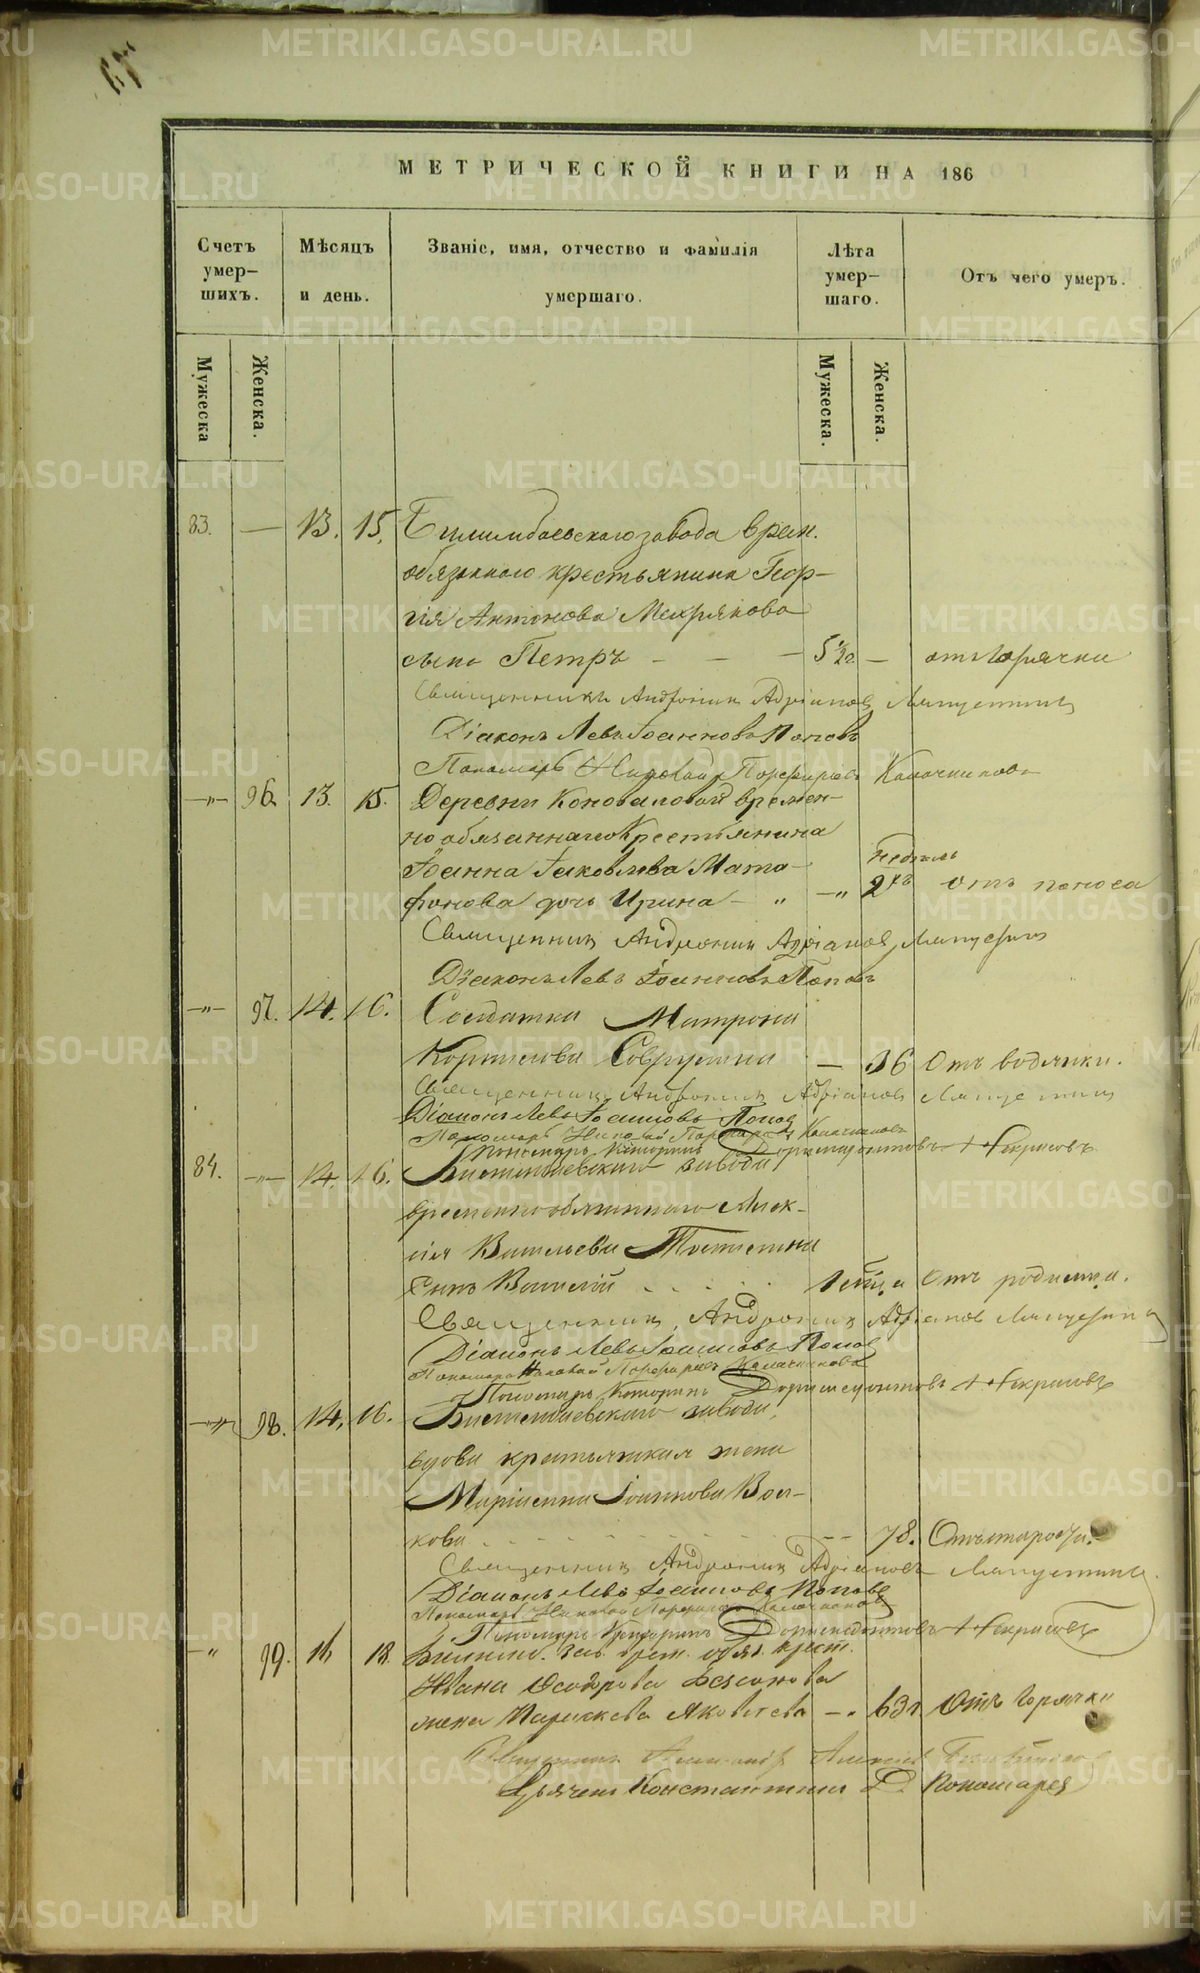 МЕТРИЧЕСКОЙ КНИГИ НА 186
Счетъ умер-шихъ.
Мѣсяцъ и день.
Званіе, имя, отчество и фамилія умершаго.
Лѣта умер-шаго.
Отъ чего умеръ.
Мужеска
Женска.
Мужеска.
Женска.
83. — 13. 15. Билимбаевскаго завода врем.
обязаннаго крестьянина Геор-
гія Антонова Мехрякова
сынъ Петръ — — — 5½ — отъ горячки
Священникъ Андроникъ Адріановъ Ляпустинъ
Діаконъ Левъ Іоанновъ Поповъ
Пономарь Николай Порфирьевъ Калачниковъ
—"— 96. 13. 15. Деревни Коноваловой времен-
но обязаннаго крестьянина
Іоанна Іаковлева Мата-
недѣль
фонова дочь Ирина — " —" 2хъ отъ поноса
Священникъ Андроникъ Адріановъ Ляпустинъ
Діаконъ Левъ Іоанновъ Поповъ
—"— 97. 14. 16. Солдатка Матрона
Корнилова — 36 Отъ водянки.
Священникъ Андроникъ Адріановъ Ляпустинъ
Діаконъ Левъ Іоанновъ Поповъ
Пономарь Николай Порфирьевъ Калачниковъ
Пономарь Некрасовъ
84. —"— 14. 16. Билимбаевскаго завода
временнообязаннаго Алек-
сія Васильева
Сынъ Василій Отъ родимца.
Священникъ Андроникъ Адріановъ Ляпустинъ
Діаконъ Левъ Іоанновъ Поповъ
Пономарь Николай Порфирьевъ Калачниковъ
Пономарь Некрасовъ
—"— 98. 14. 16. Билимбаевскаго завода,
вдова крестьянская жена
Маріанна Іоаннова Вол-
кова 78. Отъ старости.
Священникъ Андроникъ Адріановъ Ляпустинъ
Діаконъ Левъ Іоанновъ Поповъ
Пономарь Николай Порфирьевъ Калачниковъ
Пономарь Некрасовъ
—"— 99. 16 18. Билимб. зав. врем. обяз. крест.
Ивана Ѳеодорова
жена Параскева Яковлева —" 63 Отъ горячки
Священникъ
Дьячекъ Константинъ Пономаревъ
METRIKI.GASO-URAL.RU